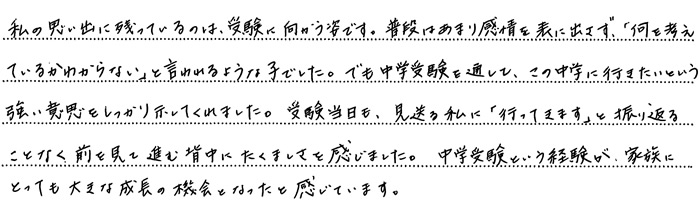 私の思い出に残っているのは、受験に向かう姿です。普段はあまり感情を表に出さず、「何を考え
ているかわからない」と言われるような子でした。でも中学受験を通して、この中学に行きたいという
強い意思をしっかり示してくれました。受験当日も、見送る私に「行ってきます」と振り返る
ことなく前を見て進む背中にたくましさを感じました。中学受験という経験が、家族に
とっても大きな成長の機会となったと感じています。